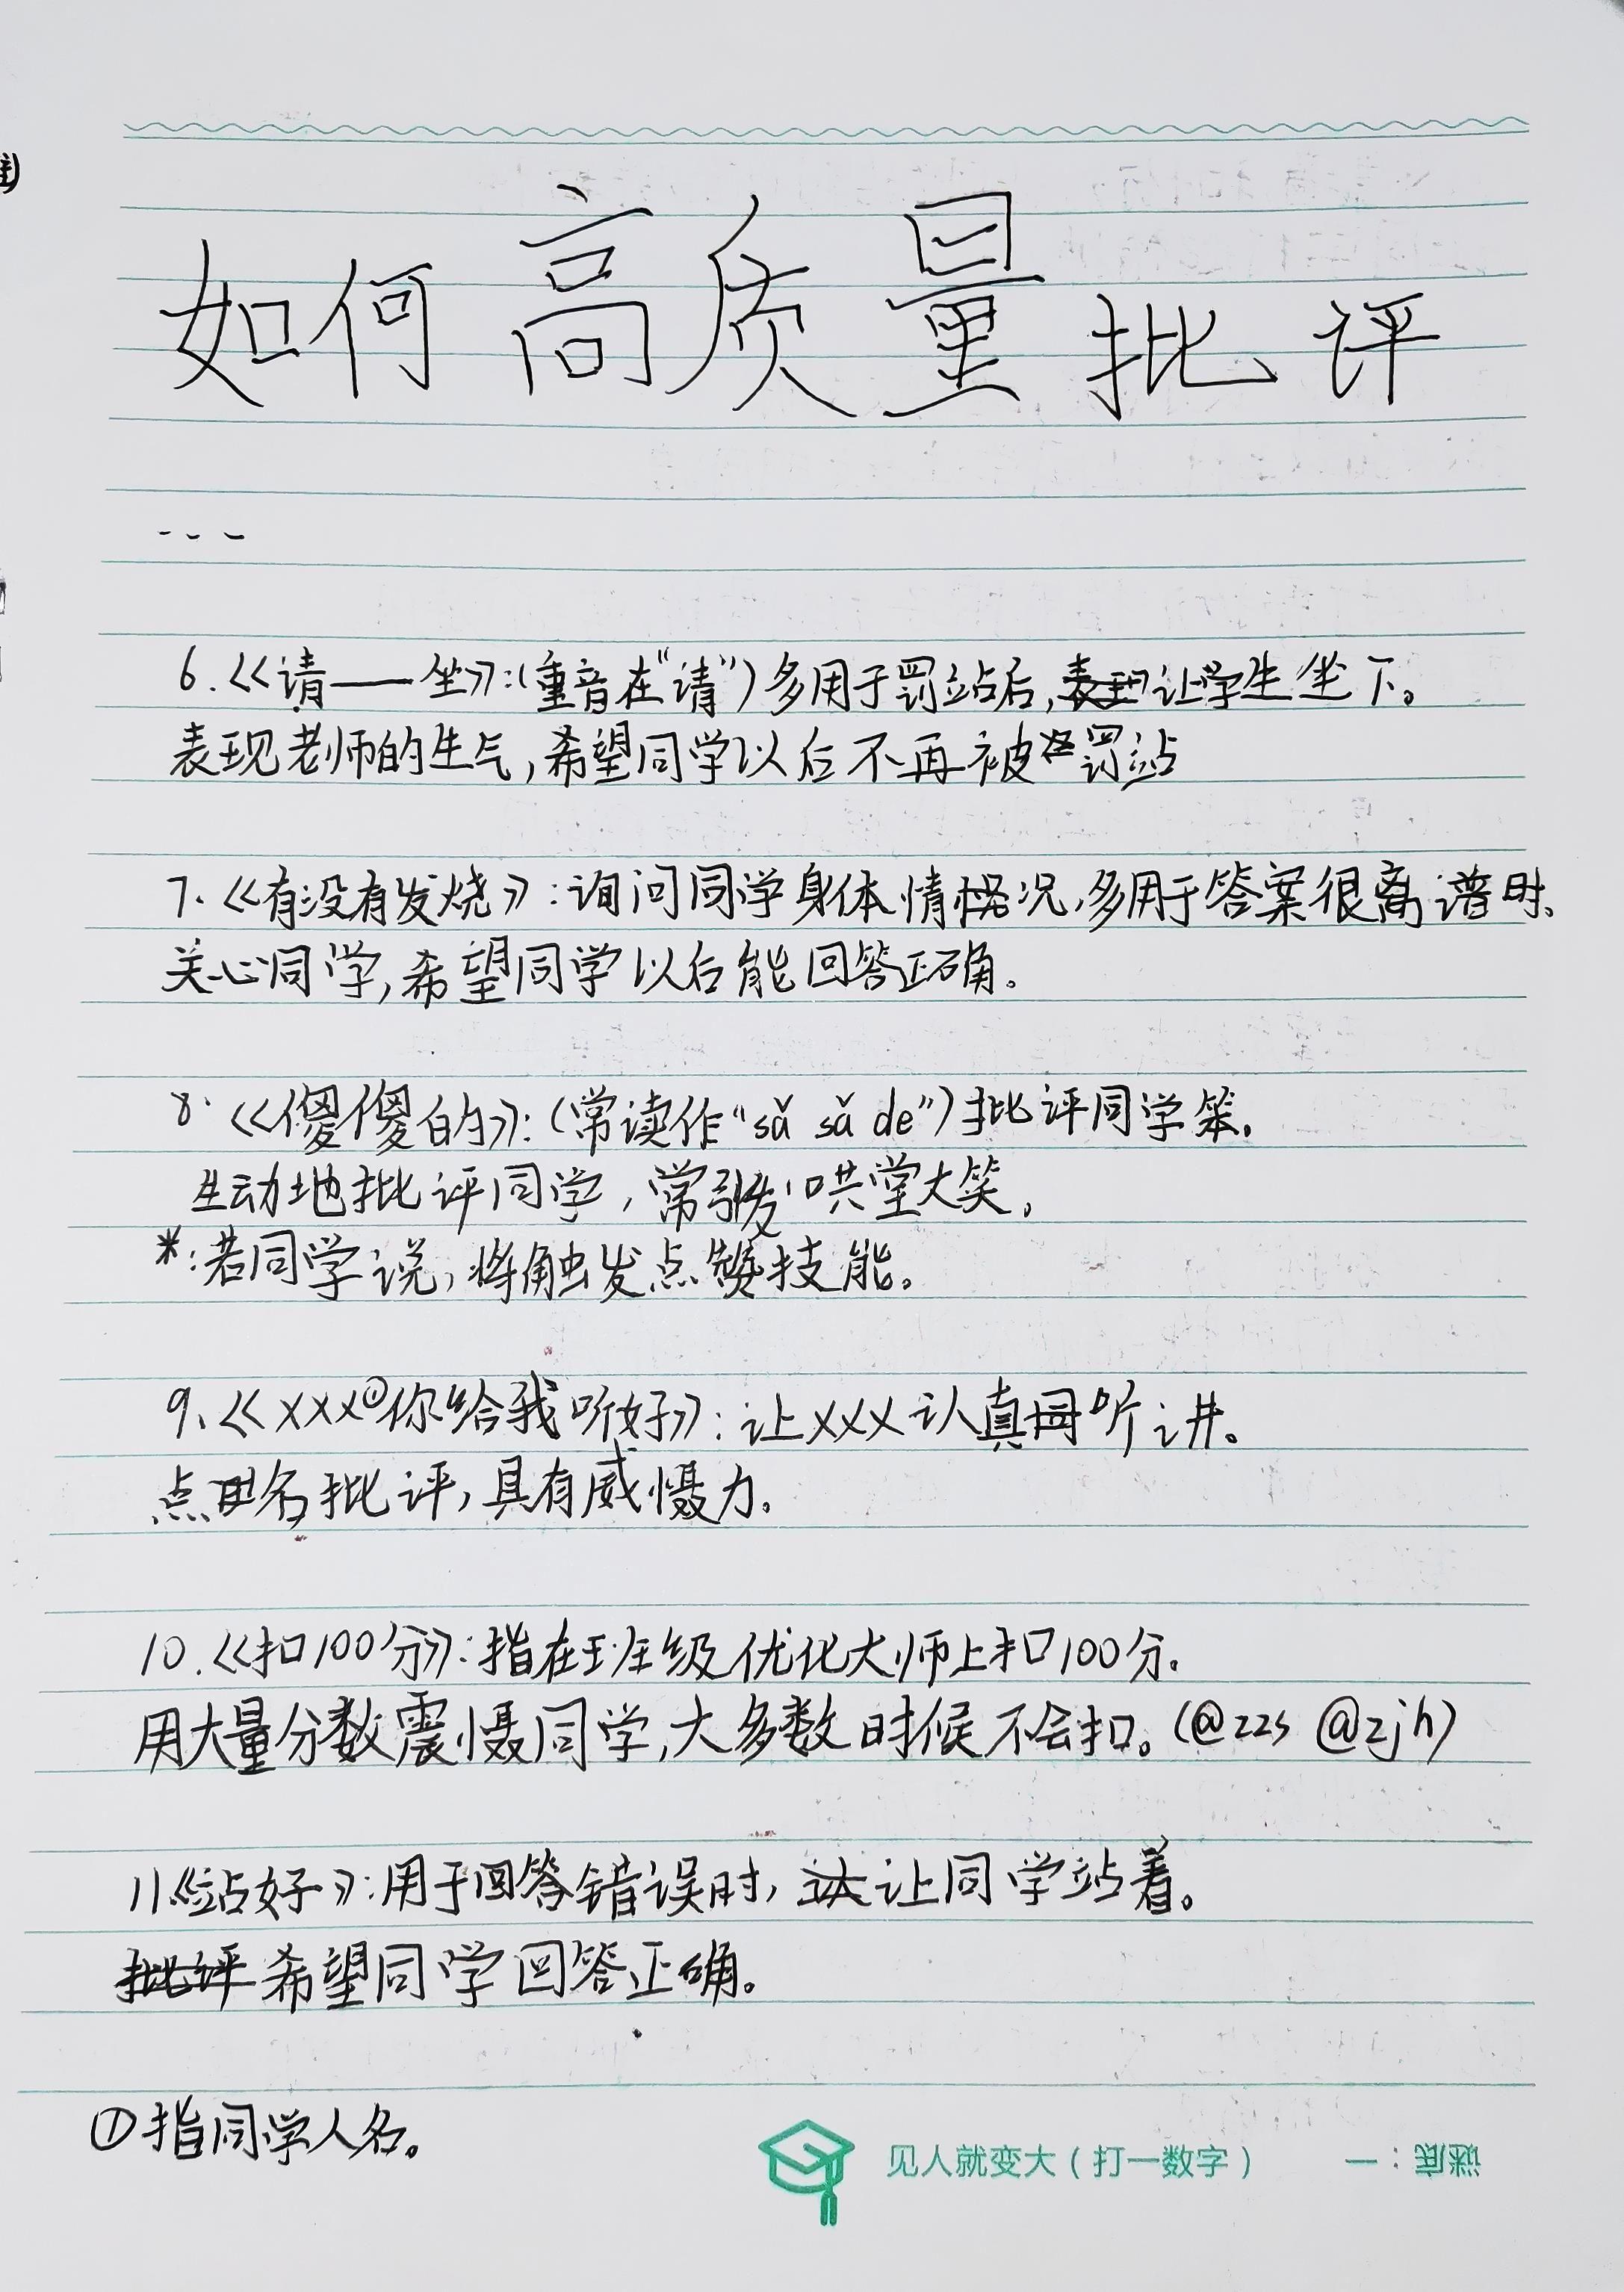 如何高质量批评
……
6.《请——坐》:(重音在“请”)多用于罚站后,表现让学生坐下。
表现老师的生气,希望同学以后不再被罚站
7.《有没有发烧》:询问同学身体情况,多用于答案很离谱时。
关心同学,希望同学以后能回答正确。
8.《傻傻的》:(常读作“sǎ sǎ de”)批评同学笨。
生动地批评同学,常引发哄堂大笑。
*:若同学说,将触发点赞技能。
9.《XXX①你给我听好》:让XXX认真听讲。
点名批评,具有威慑力。
10.《扣100分》:指在班级优化大师上扣100分。
用大量分数震慑同学,大多数时候不会扣。(@zzs @zjh)
11《站好》:用于回答错误时,让同学站着。
批评希望同学回答正确。
①指同学人名。
见人就变大(打一数字) 谜底:一